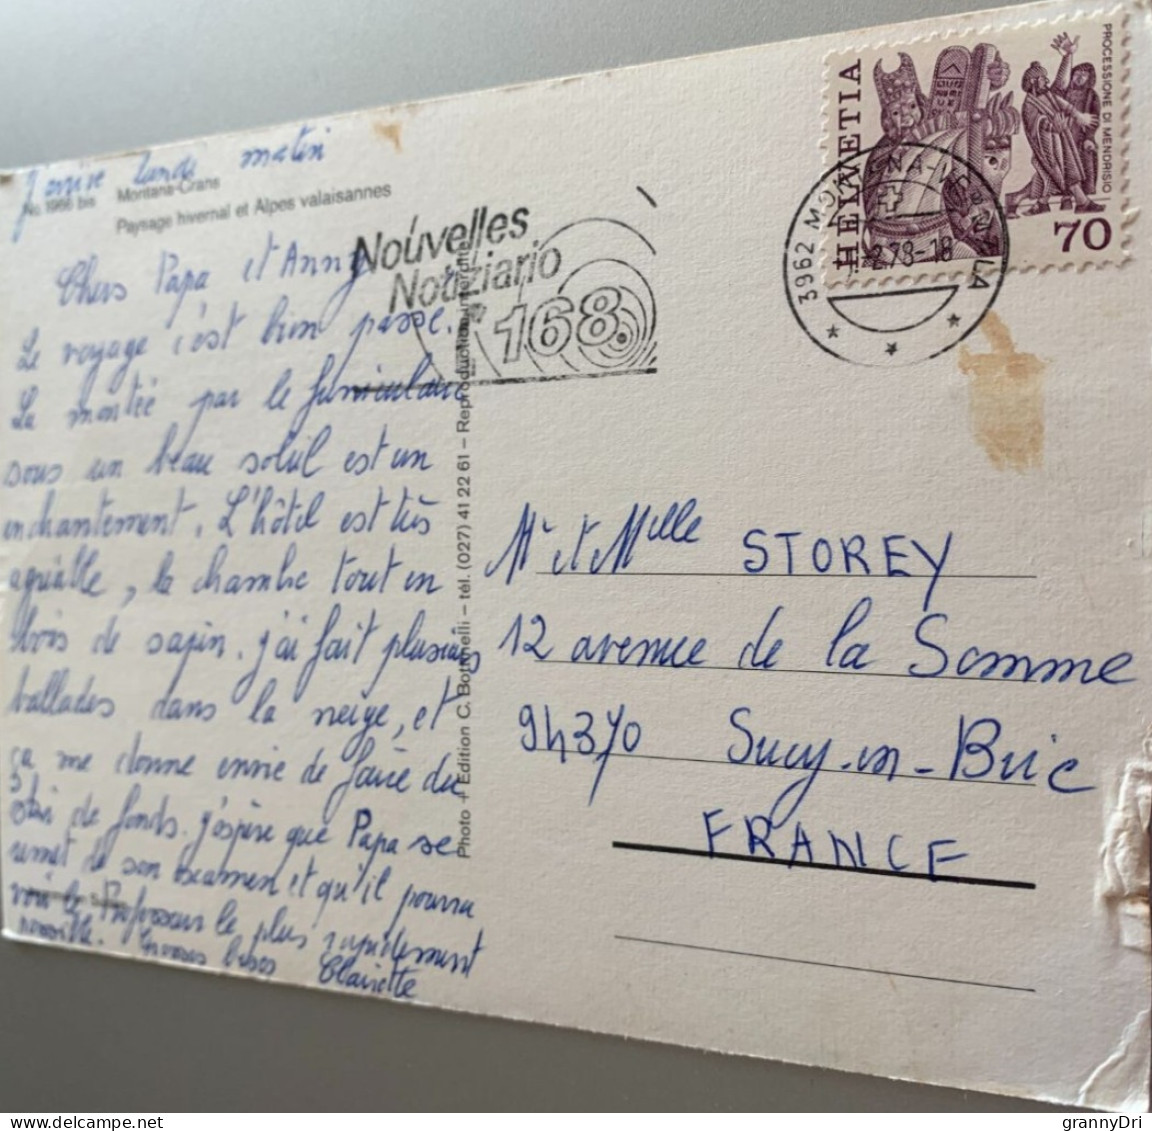 J'arrive lundi matin
No 1966 bis Montana-Crans
Paysage hivernal et Alpes valaisannes
Chers Papa et Anny
Le voyage c'est bien passé.
La montée par le funiculaire
sous un beau soleil est un
enchantement. L'hôtel est très
agréable, la chambre tout en
bois de sapin. j'ai fait plusieurs
ballades dans la neige, et
ça me donne envie de faire du
ski de fonds. j'espère que Papa se
remet de son examen et qu'il pourra
voir le Professeur le plus rapidement
possible. Grosses bises Clairette
Photo + Edition C. Bottinelli – tél. (027) 41 22 61 – Reproduction interdite
Nouvelles
Notiziario
168
HELVETIA
PROCESSIONE DI MENDRISIO
70
3962 MONTANA-VERMALA
2.78-18
Mr et Melle STOREY
12 avenue de la Somme
94370 Sucy-en-Brie
FRANCE
grannyDri